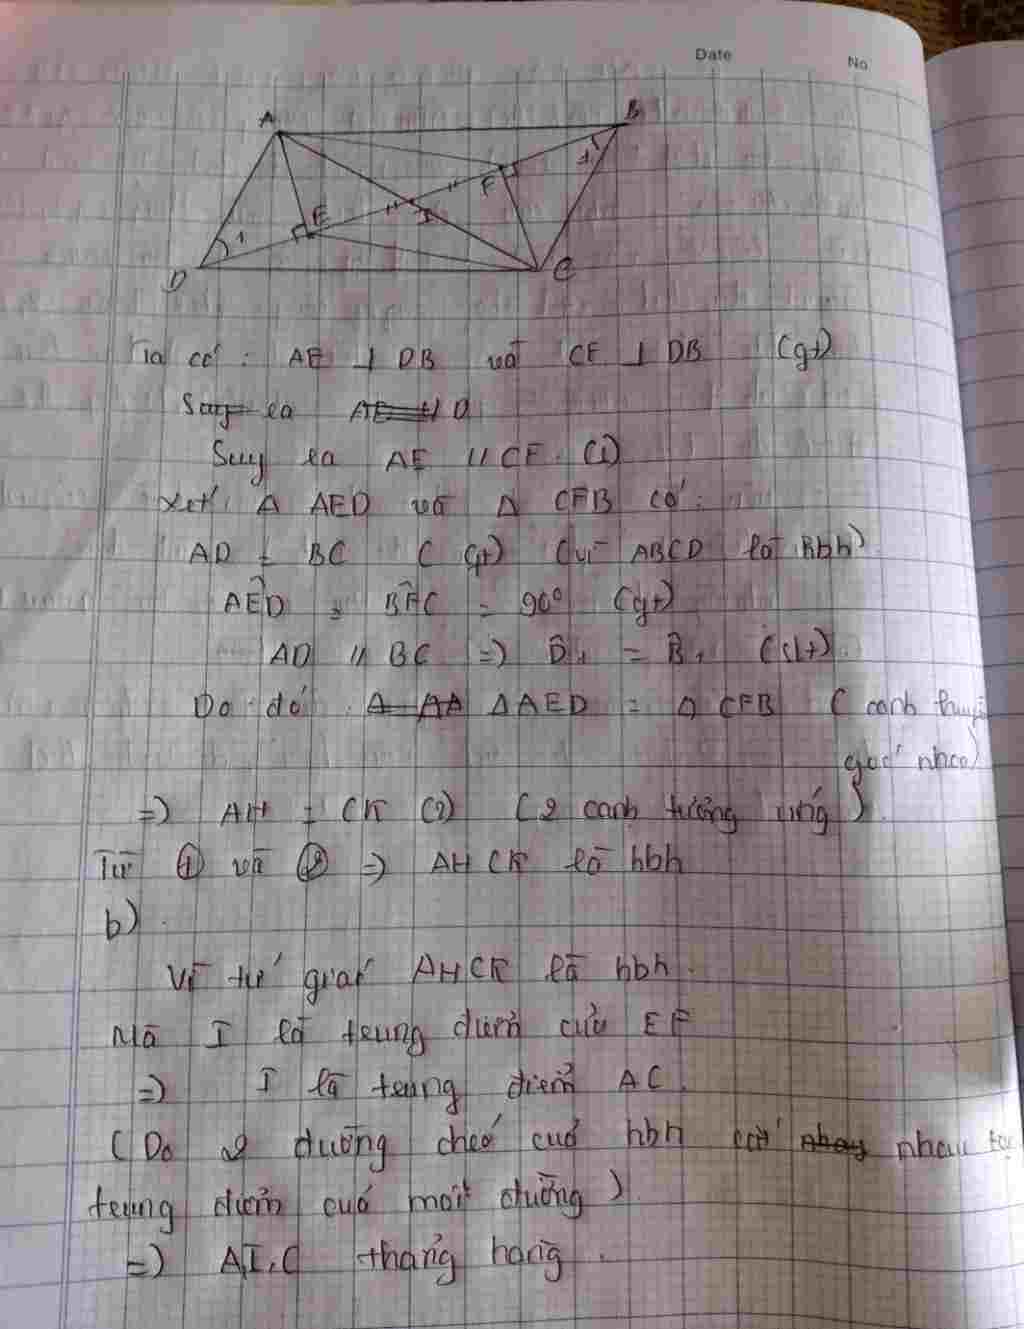 Date
No
A
B
F
1
E
I
1
D
C
Ta có: AE ⊥ DB và CF ⊥ DB (gt)
Suy ra AE // D
Suy ra AE // CF (1)
Xét Δ AED và Δ CFB có:
AD = BC (gt) (vì ABCD là hbh)
AÊD = BF̂C = 90° (gt)
AD // BC => D̂₁ = B̂₁ (slt)
Do đó Δ AA ΔAED = Δ CFB (cạnh huyền
góc nhọn)
=> AH = CK (2) (2 cạnh tương ứng)
Từ ① và ② => AHCK là hbh
b)
Vì tứ giác AHCK là hbh.
Mà I là trung điểm của EF
=> I là trung điểm AC.
(Do 2 đường chéo của hbh cắt nhau tại
trung điểm của mỗi đường)
=> A,I,C thẳng hàng.